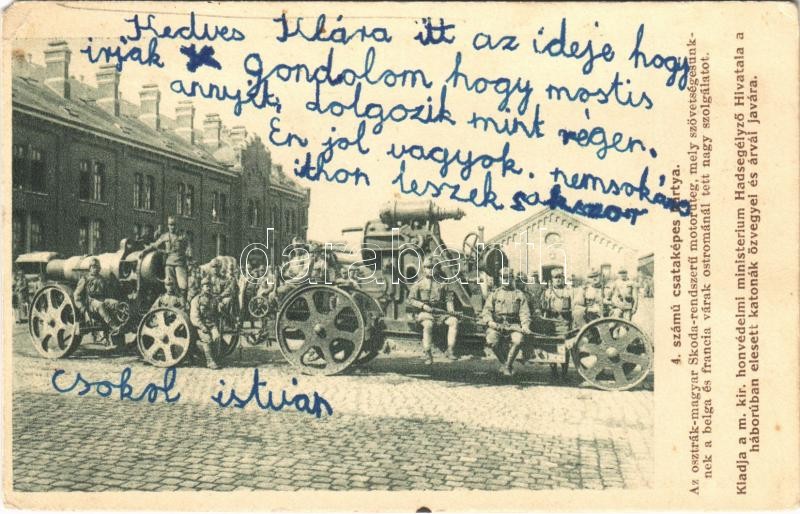 Kedves Klára itt az ideje hogy
irjak Gondolom hogy mostis
annyit, dolgozik mint régen.
En jol vagyok. nemsokára
ithon leszek sakszor
csokol istván
4. számú csataképes kártya.
Az osztrák-magyar Skoda-rendszerű motorüteg, mely szövetségesünk-
nek a belga és francia várak ostrománál tett nagy szolgálatot.
Kiadja a m. kir. honvédelmi ministerium Hadsegélyző Hivatala a
háborúban elesett katonák özvegyei és árvái javára.
darabanth.com